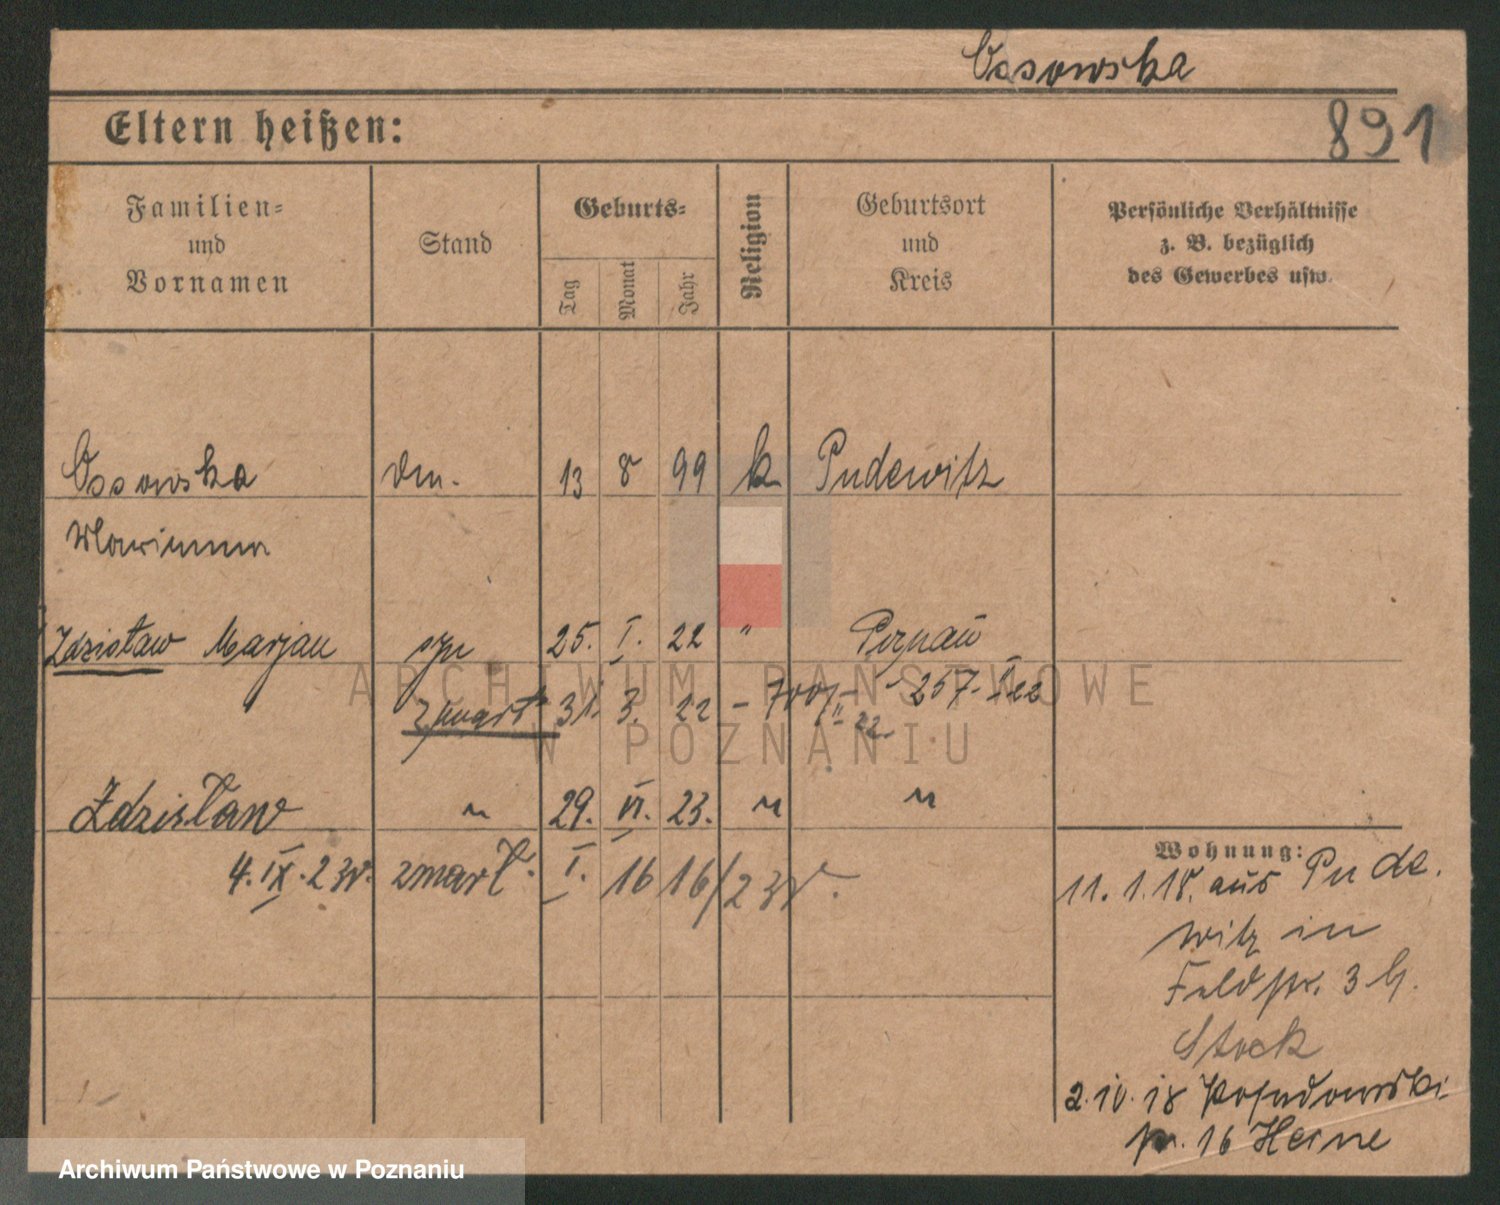 Ossowska
891
Eltern heißen:
Familien-
und
Vornamen
Stand
Geburts-
Tag
Monat
Jahr
Religion
Geburtsort
und
Kreis
Persönliche Verhältnisse
z. B. bezüglich
des Gewerbes usw.
Ossowska 13 8 99 k Pudewitz
Marianna
Zdzisław Marjan 25. I. 22 " Poznań
31. 3. 22 - 257. 22
Zdzisław " 29. VI. 23. " "
4. IX. 23r. zmarł. I. 16 16/23r.
Wohnung:
11. 1. 18. aus Pude
witz in
Feldstr. 3
Stock
2. IV. 18
str. 16 Heine
ARCHIWUM PAŃSTWOWE
W POZNANIU
Archiwum Państwowe w Poznaniu